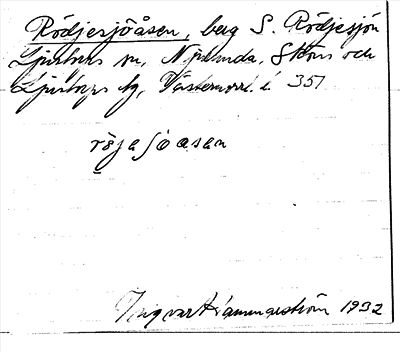 Rödjesjöåsen, berg S. Rödjesjön
Ljustorps sn, N. Indals, Sköns och
Ljustorps tg, Västernorrl. l. 351
röjesjoasen
Ingvar Hammarström 1932